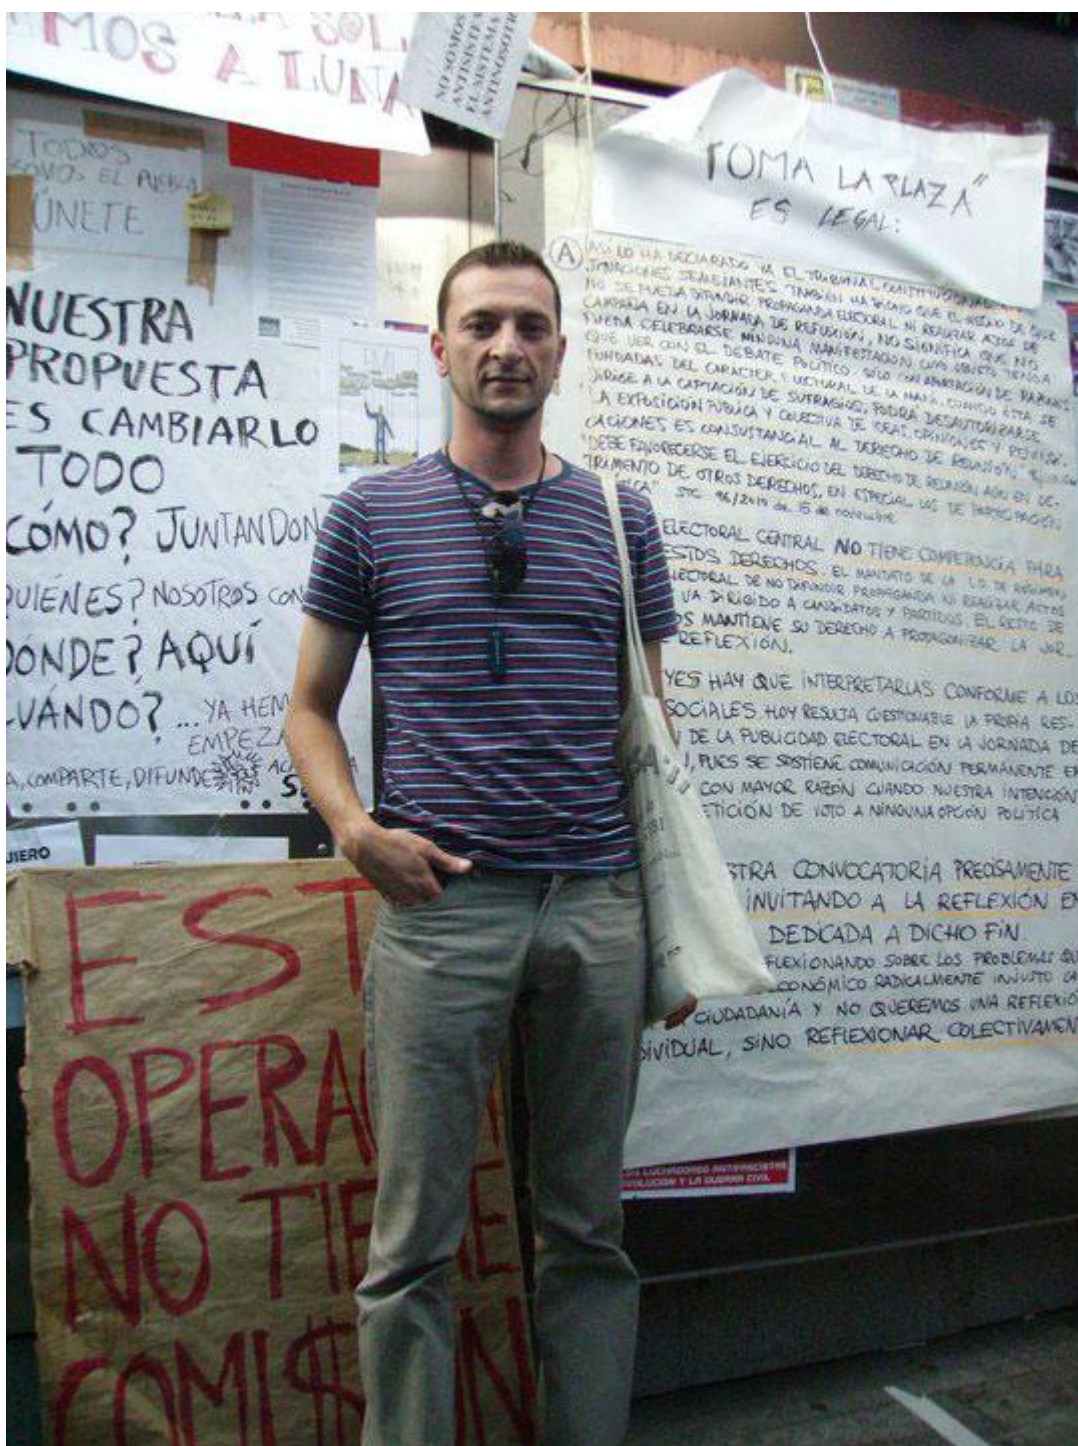 SOL
AMOS A LUNA
NO SOMOS
ANTISISTEMA
EL SISTEMA ES
ANTINOSOTR
TODXS
SOMOS EL PUEBLO
ÚNETE
NUESTRA
PROPUESTA
ES CAMBIARLO
TODO
CÓMO? JUNTANDON
QUIÉNES? NOSOTROS CON
DÓNDE? AQUÍ
CUÁNDO? ... YA HEM
EMPEZA
A, COMPARTE, DIFUNDE
UIERO
EST
OPERA
NO TIENE
COMI$ N
"TOMA LA PLAZA"
ES LEGAL:
A
ASI LO HA DECLARADO YA EL TRIBUNAL CONSTITUCIONAL
SITUACIONES SEMEJANTES. TAMBIEN HA DICHO QUE EL HECHO DE QUE
NO SE PUEDA DIFUNDIR PROPAGANDA ELECTORAL NI REALIZAR ACTOS DE
CAMPAÑA EN LA JORNADA DE REFLEXIÓN, NO SIGNIFICA QUE NO
PUEDA CELEBRARSE NINGUNA MANIFESTACIÓN CUYO OBJETO TENGA
QUE VER CON EL DEBATE POLITICO. SÓLO CON APORTACIÓN DE RAZONES
FUNDADAS DEL CARACTER ELECTORAL DE LA MANI, CUANDO ÉSTA SE
DIRIGE A LA CAPTACIÓN DE SUFRAGIOS, PODRÁ DESAUTORIZARSE.
LA EXPOSICIÓN PÚBLICA Y COLECTIVA DE IDEAS, OPINIONES Y REIVINDI-
CACIONES ES CONSUSTANCIAL AL DERECHO DE REUNIÓN,
"DEBE FAVORECERSE EL EJERCICIO DEL DERECHO DE REUNIÓN AÚN EN DE-
TRIMENTO DE OTROS DERECHOS, EN ESPECIAL LOS DE PARTICIPACIÓN
STC 96/2010 de 15 de noviembre
ELECTORAL CENTRAL NO TIENE COMPETENCIA PARA
ESTOS DERECHOS. EL MANDATO DE LA L.O. DE RÉGIMEN
LECTORAL DE NO DIFUNDIR PROPAGANDA NI REALIZAR ACTOS
VA DIRIGIDO A CANDIDATOS Y PARTIDOS. EL RESTO DE
OS MANTIENE SU DERECHO A PROTAGONIZAR LA JOR-
REFLEXIÓN.
YES HAY QUE INTERPRETARLAS CONFORME A LOS
SOCIALES. HOY RESULTA CUESTIONABLE LA PROPIA RES-
N DE LA PUBLICIDAD ELECTORAL EN LA JORNADA DE
, PUES SE SOSTIENE COMUNICACIÓN PERMANENTE EN
CON MAYOR RAZÓN CUANDO NUESTRA INTENCIÓN
ETICIÓN DE VOTO A NINGUNA OPCIÓN POLÍTICA
STRA CONVOCATORIA PRECISAMENTE
INVITANDO A LA REFLEXIÓN EN
DEDICADA A DICHO FIN.
FLEXIONANDO SOBRE LOS PROBLEMAS QU
CONÓMICO RADICALMENTE INJUSTO CA
CIUDADANÍA Y NO QUEREMOS UNA REFLEXIÓ
DIVIDUAL, SINO REFLEXIONAR COLECTIVAMEN
LOS LUCHADORES ANTIFASCISTAS
EVOLUCION Y LA GUERRA CIVIL